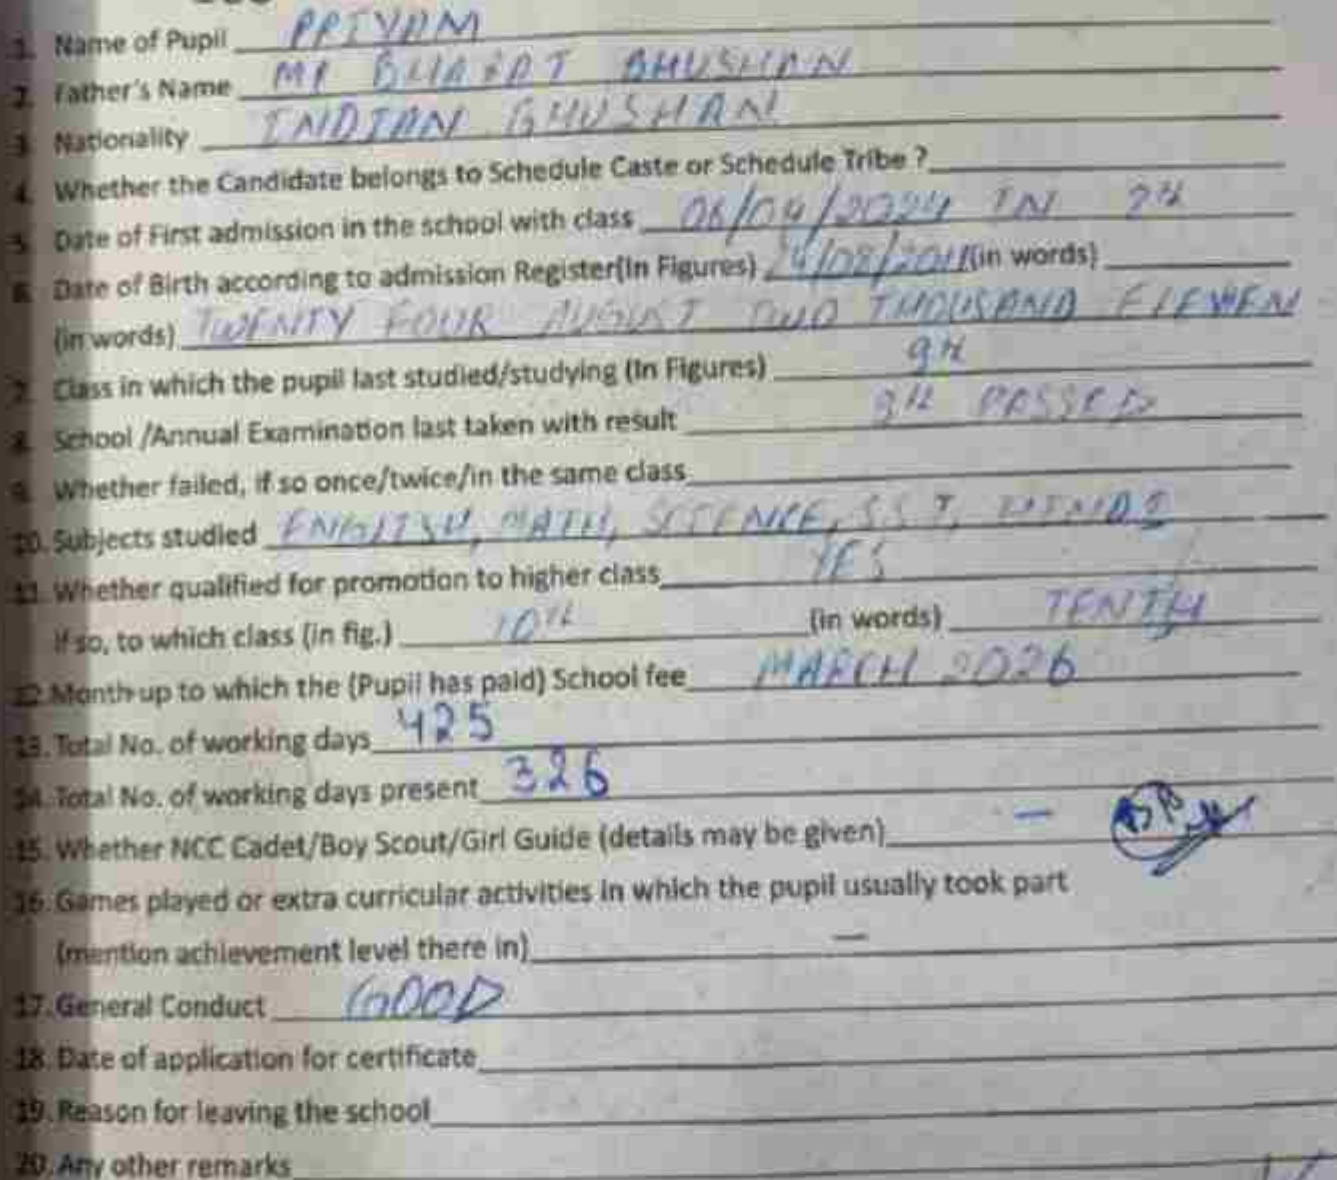 1. Name of Pupil PRIYAM
2. Father's Name MR BHARAT BHUSHAN
3. Nationality INDIAN BHUSHAN
4. Whether the Candidate belongs to Schedule Caste or Schedule Tribe ?
5. Date of First admission in the school with class 06/04/2024 IN
6. Date of Birth according to admission Register(In Figures) 24/08/2011 (in words)
(in words) TWENTY FOUR AUGUST TWO THOUSAND ELEVEN
7. Class in which the pupil last studied/studying (In Figures) 9th
8. School /Annual Examination last taken with result 9th PASSED
9. Whether failed, if so once/twice/in the same class
10. Subjects studied ENGLISH, MATH, SCIENCE, S.S.T, HINDI
11. Whether qualified for promotion to higher class YES
If so, to which class (in fig.) 10th (in words) TENTH
12 Month up to which the (Pupil has paid) School fee MARCH 2026
13. Total No. of working days 425
14. Total No. of working days present 326
15. Whether NCC Cadet/Boy Scout/Girl Guide (details may be given) —
16. Games played or extra curricular activities in which the pupil usually took part
(mention achievement level there in) —
17. General Conduct GOOD
18. Date of application for certificate
19. Reason for leaving the school
20. Any other remarks